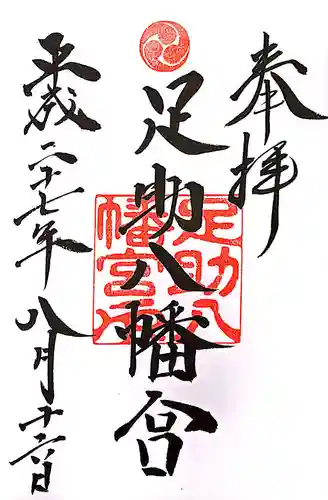 奉拝
足助八幡宮
足助八幡宮印
平成二十七年八月十六日